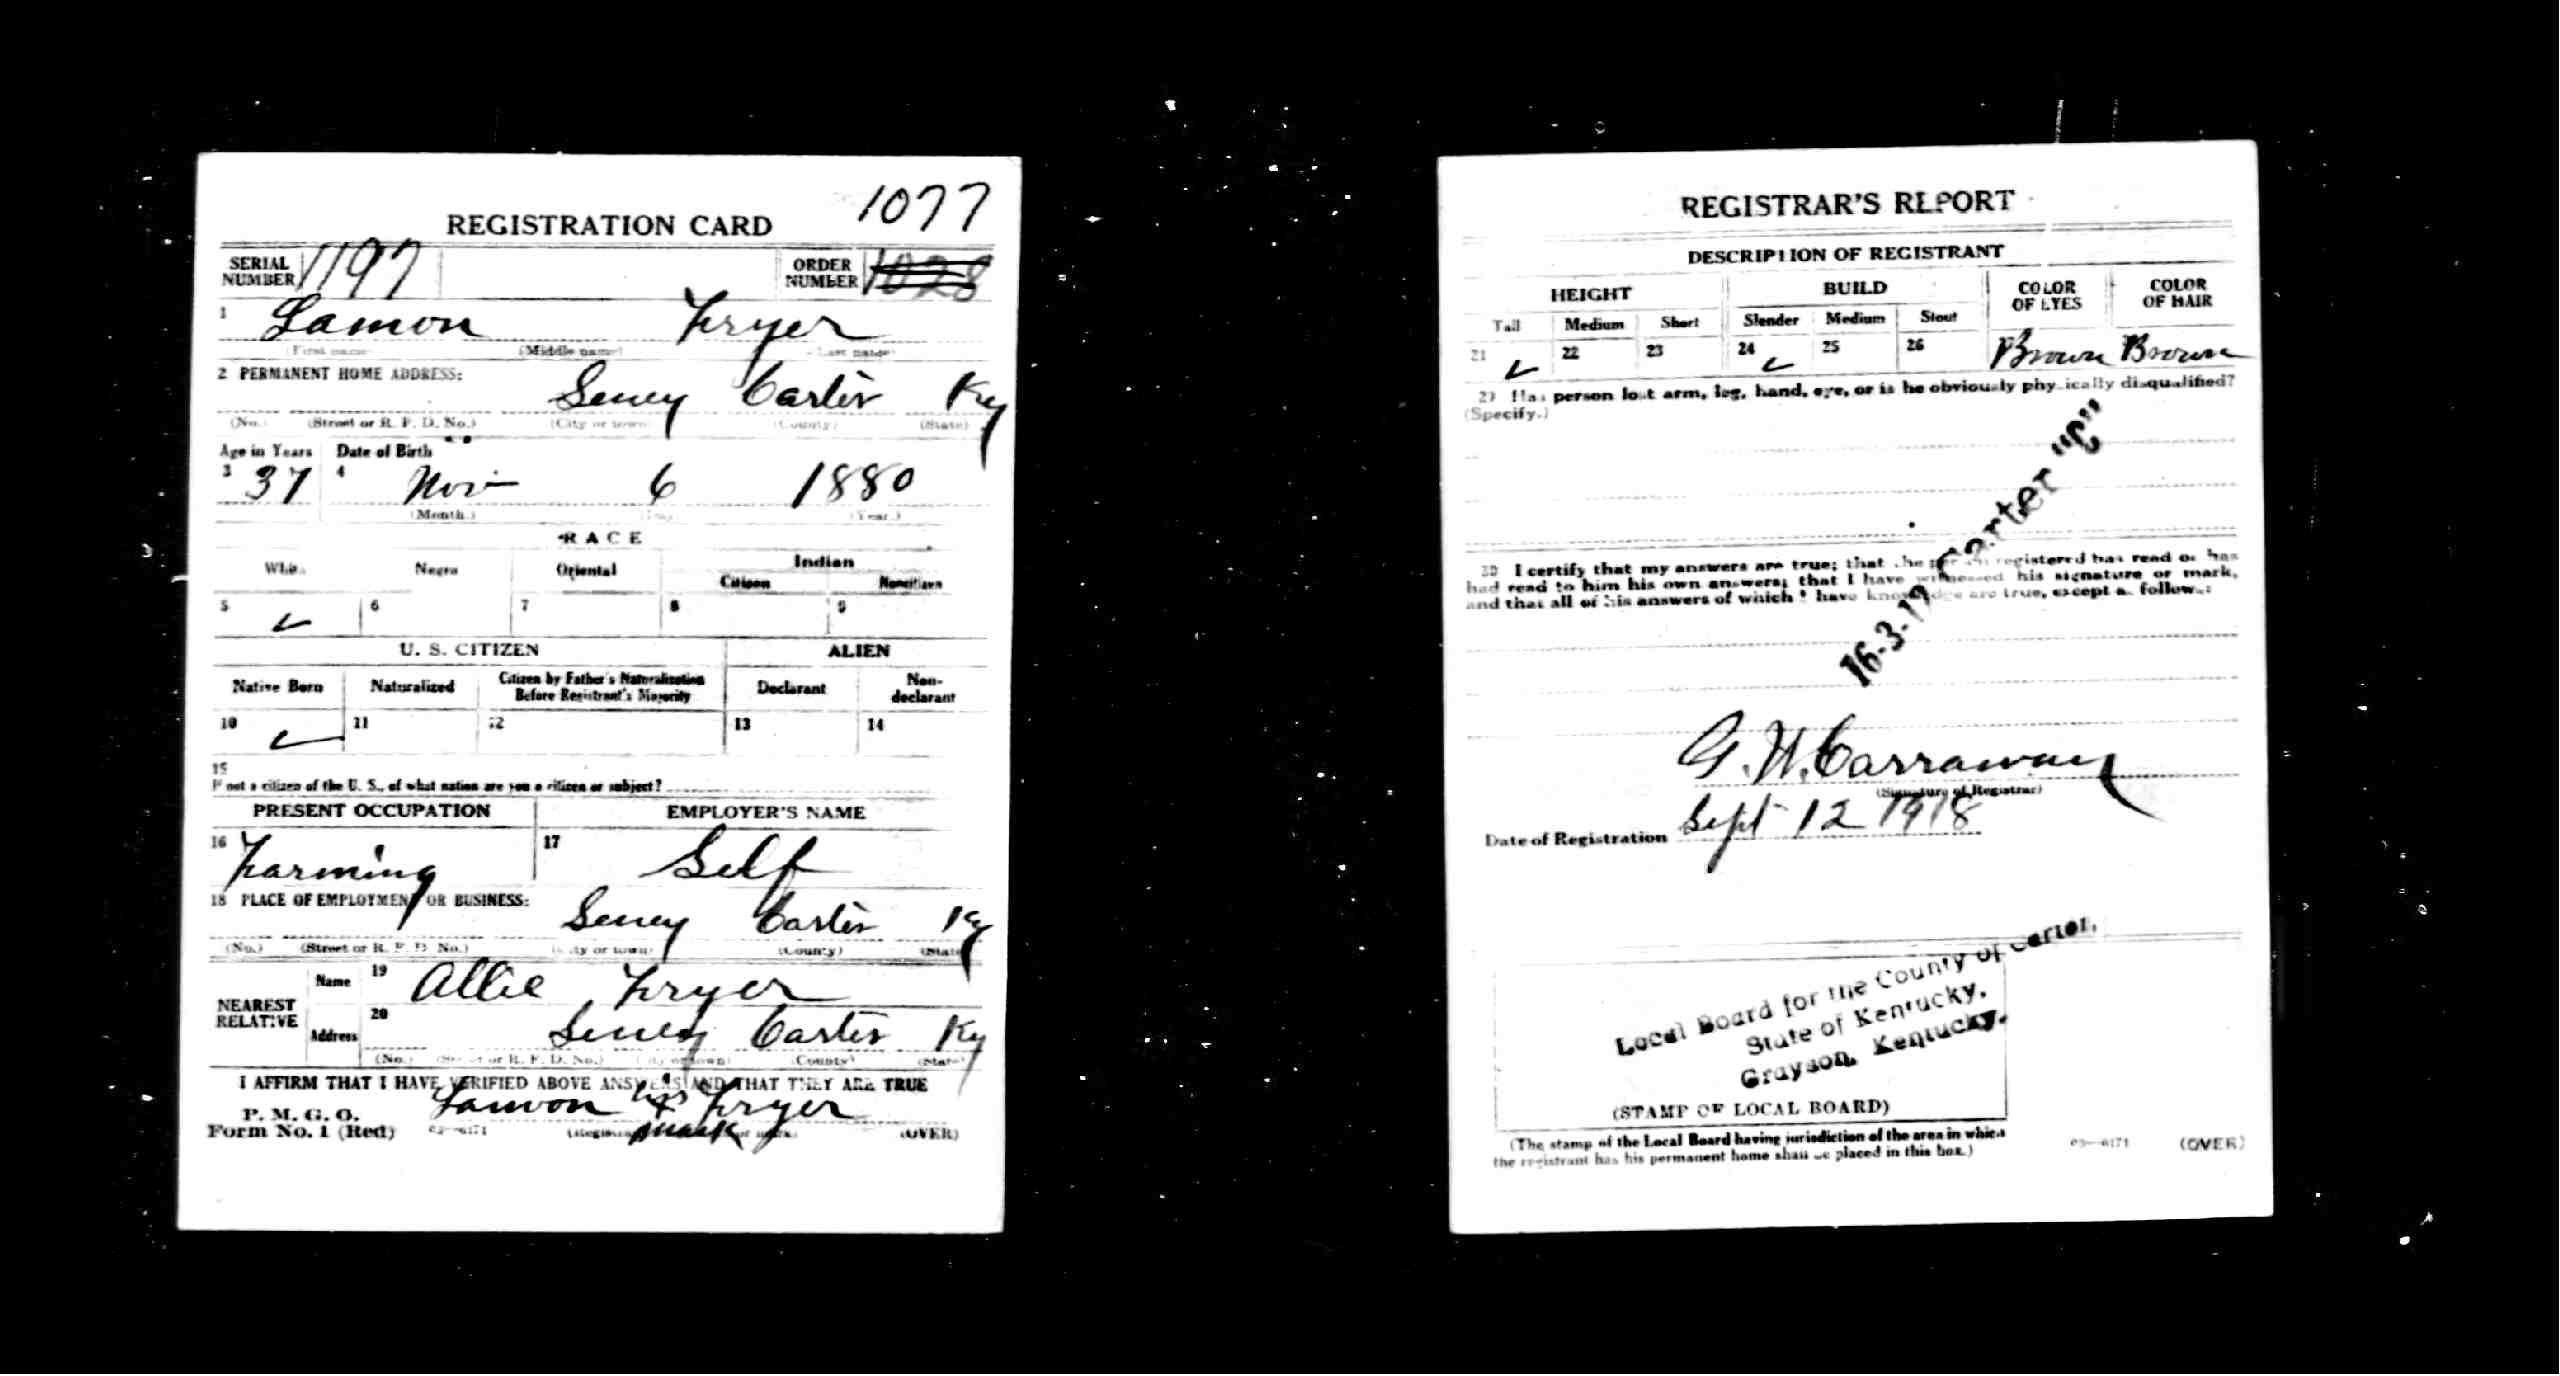 1077
REGISTRATION CARD
SERIAL NUMBER 1197 ORDER NUMBER 1028
1 Lamon Fryer
(First name) (Middle name) (Last name)
2 PERMANENT HOME ADDRESS: Seney Carter Ky
(No.) (Street or R. F. D. No.) (City or town) (County) (State)
Age in Years Date of Birth
3 37 4 Nov 6 1880
(Month.) (Day.) (Year.)
RACE
White Negro Oriental Indian
Citizen Noncitizen
5 ✓ 6 7 8 9
U. S. CITIZEN ALIEN
Native Born Naturalized Citizen by Father's Naturalization Before Registrant's Majority Declarant Non-declarant
10 ✓ 11 12 13 14
15
If not a citizen of the U. S., of what nation are you a citizen or subject?
PRESENT OCCUPATION EMPLOYER'S NAME
16 Farming 17 Self
18 PLACE OF EMPLOYMENT OR BUSINESS: Seney Carter Ky
(No.) (Street or R. F. D. No.) (City or town) (County) (State)
NEAREST RELATIVE Name 19 Allie Fryer
Address 20 Seney Carter Ky
(No.) (Street or R. F. D. No.) (City or town) (County) (State)
I AFFIRM THAT I HAVE VERIFIED ABOVE ANSWERS AND THAT THEY ARE TRUE
P. M. G. O.
Form No. 1 (Red) 03—6171 Lamon his x mark Fryer (OVER)
REGISTRAR'S REPORT
DESCRIPTION OF REGISTRANT
HEIGHT BUILD COLOR OF EYES COLOR OF HAIR
Tall Medium Short Slender Medium Stout
21 ✓ 22 23 24 ✓ 25 26 Brown Brown
29 Has person lost arm, leg, hand, eye, or is he obviously physically disqualified?
(Specify.)
16-3-19 Carter "C"
30 I certify that my answers are true; that the person registered has read or has
had read to him his own answers; that I have witnessed his signature or mark,
and that all of his answers of which I have knowledge are true, except as follows:
G. W. Carraway
(Signature of Registrar)
Date of Registration Sept 12 1918
Local Board for the County of Carter,
State of Kentucky,
Grayson, Kentucky.
(STAMP OF LOCAL BOARD)
(The stamp of the Local Board having jurisdiction of the area in which
the registrant has his permanent home shall be placed in this box.)
03—6171 (OVER)